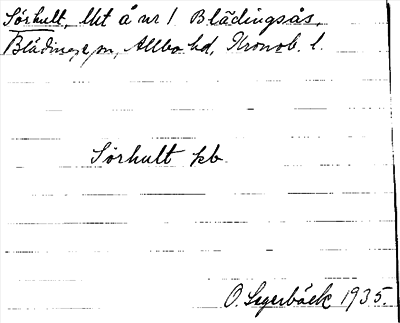 Sörhult, lht å nr 1 Blädingsås,
Blädinge sn, Allbo hd, Kronob. l.
Sörhult pb.
O. Sagerbäck 1935.